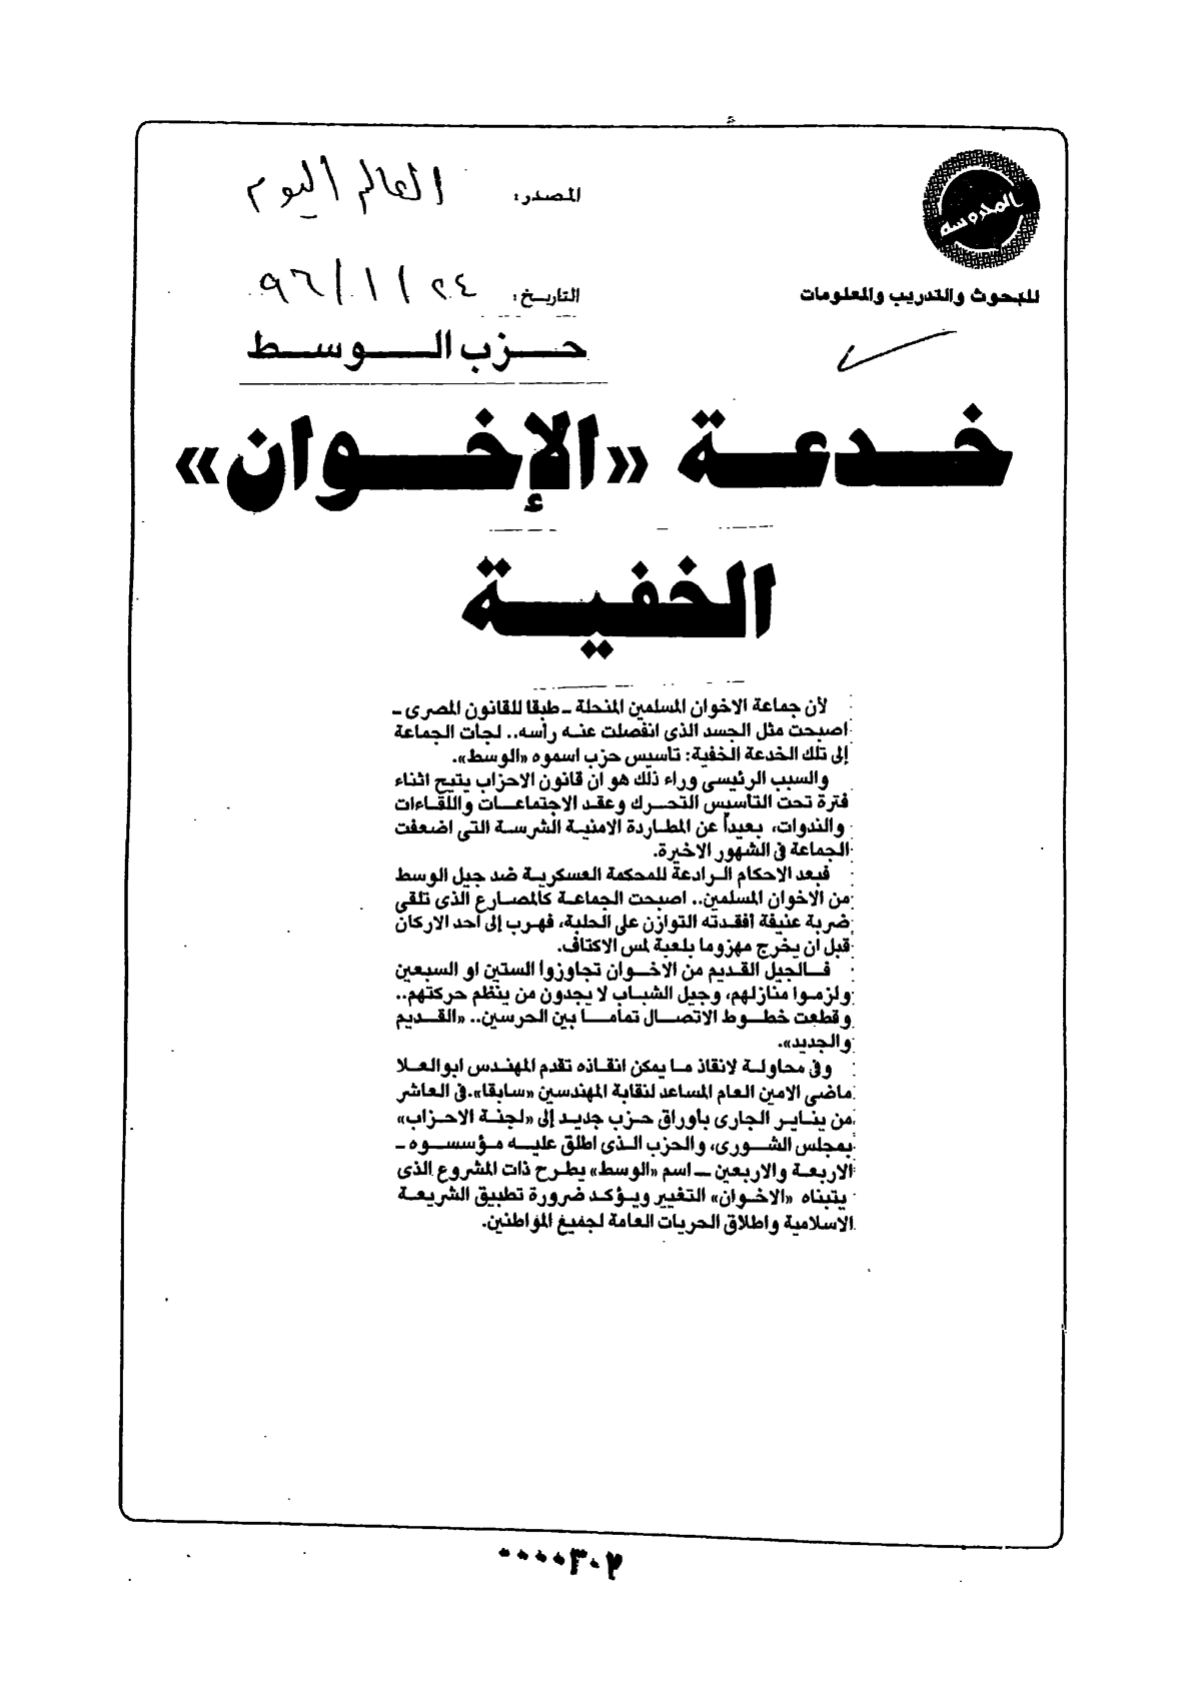 المحروسه
للبحوث والتدريب والمعلومات
المصدر: العالم اليوم
التاريخ: ٢٤ / ١ / ٩٦
حزب الوسط
خدعة «الإخوان»
الخفية
لأن جماعة الاخوان المسلمين المنحلة ـ طبقا للقانون المصرى ـ
اصبحت مثل الجسد الذى انفصلت عنه رأسه.. لجات الجماعة
إلى تلك الخدعة الخفية: تاسيس حزب اسموه «الوسط».
والسبب الرئيسى وراء ذلك هو ان قانون الاحزاب يتيح اثناء
فترة تحت التأسيس التحرك وعقد الاجتماعات واللقاءات
والندوات، بعيداً عن المطاردة الامنية الشرسة التى اضعفت
الجماعة فى الشهور الاخيرة.
فبعد الاحكام الرادعة للمحكمة العسكرية ضد جيل الوسط
من الاخوان المسلمين.. اصبحت الجماعة كالمصارع الذى تلقى
ضربة عنيفة افقدته التوازن على الحلبة، فهرب إلى احد الاركان
قبل ان يخرج مهزوما بلعبة لمس الاكتاف.
فالجيل القديم من الاخوان تجاوزوا الستين او السبعين
ولزموا منازلهم، وجيل الشباب لا يجدون من ينظم حركتهم..
وقطعت خطوط الاتصال تماما بين الحرسين.. «القديم
والجديد».
وفى محاولة لانقاذ ما يمكن انقاذه تقدم المهندس ابوالعلا
ماضى الامين العام المساعد لنقابة المهندسين «سابقا».فى العاشر
من يناير الجارى بأوراق حزب جديد إلى «لجنة الاحزاب»
بمجلس الشورى، والحزب الذى اطلق عليه مؤسسوه ـ
الاربعة والاربعين ـ اسم «الوسط» يطرح ذات المشروع الذى
يتبناه «الاخوان» التغيير ويؤكد ضرورة تطبيق الشريعة
الاسلامية واطلاق الحريات العامة لجميع المواطنين.
٠٠٠٠٣٠٢